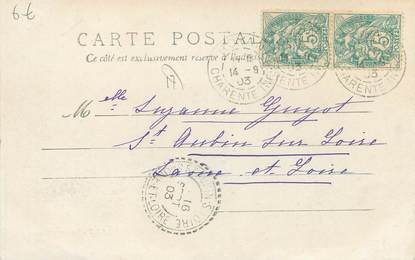 6 €
CARTE POSTALE
Ce côté est exclusivement réservé à
14 - 9
03
CHARENTE
5
5
03
N
Melle Suzanne Guyot
St Aubin sur Loire
Saone et Loire
16
03
LOIRE